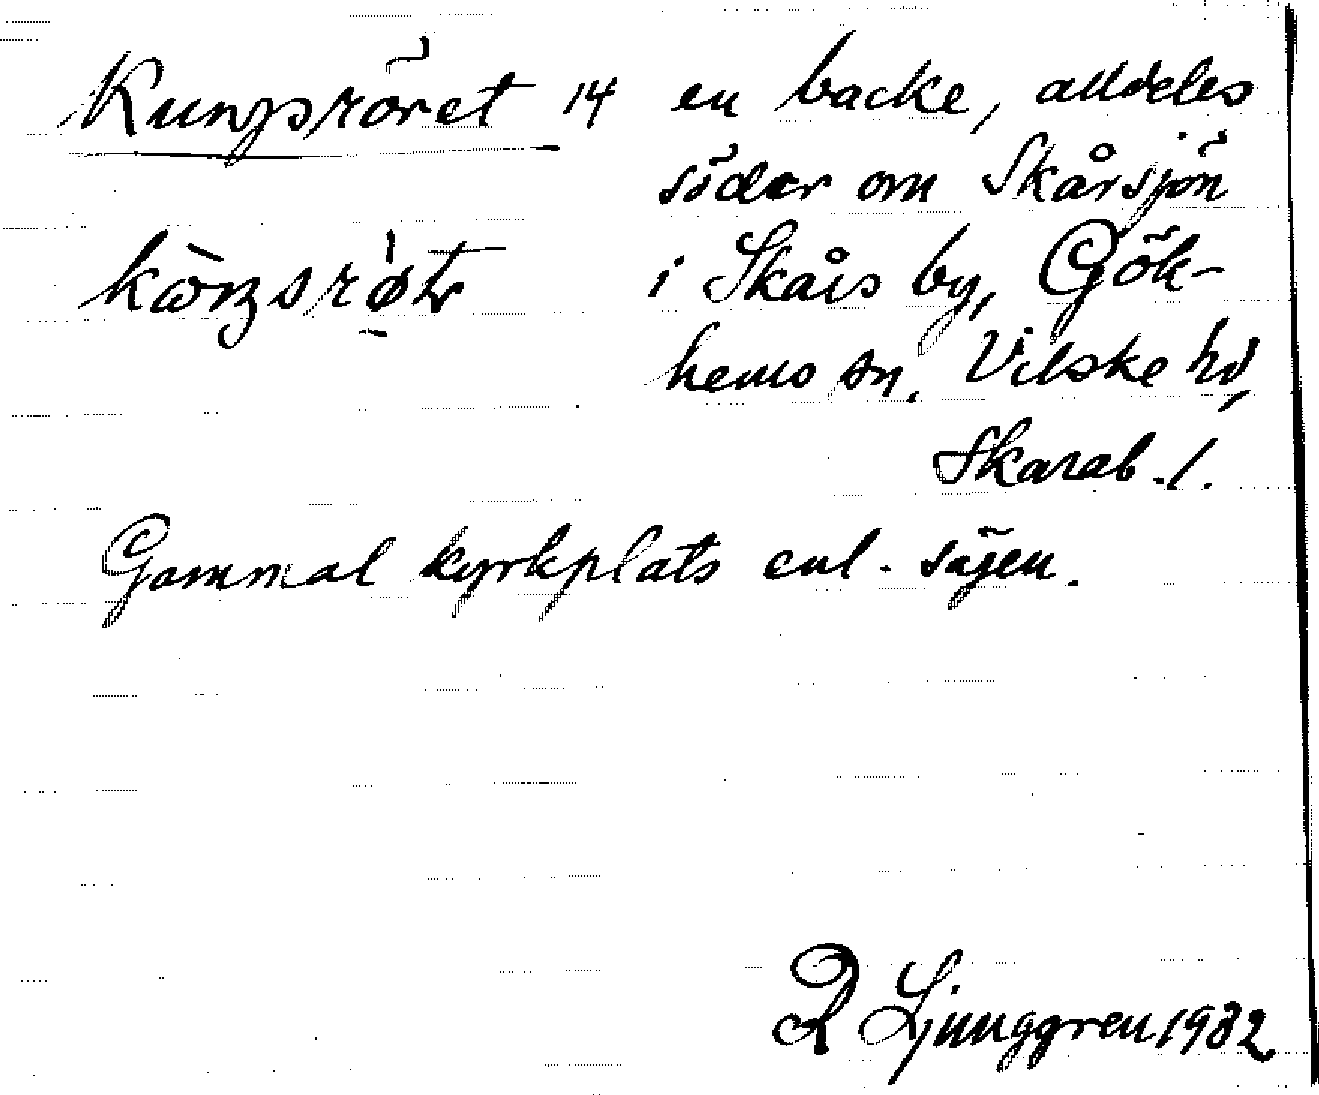 Kungsröret 14 en backe, alldeles
söder om Skårsjön
i Skårs by, Gök-
hems sn. Vilske hd,
Skarab. l.
Gammal kyrkplats enl. sägen.
R Ljunggren 1932